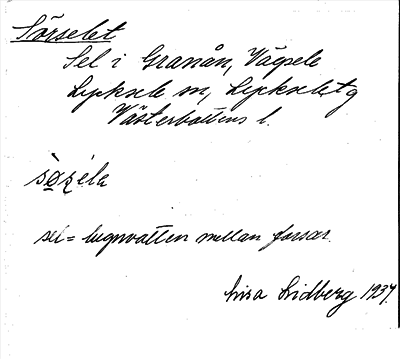 Sörselet
Sel i Granån, Vägsele
Lycksele sn, Lycksele tg
Västerbottens l.
sel = lugnvatten mellan forsar.
Lisa Lidberg 1937.